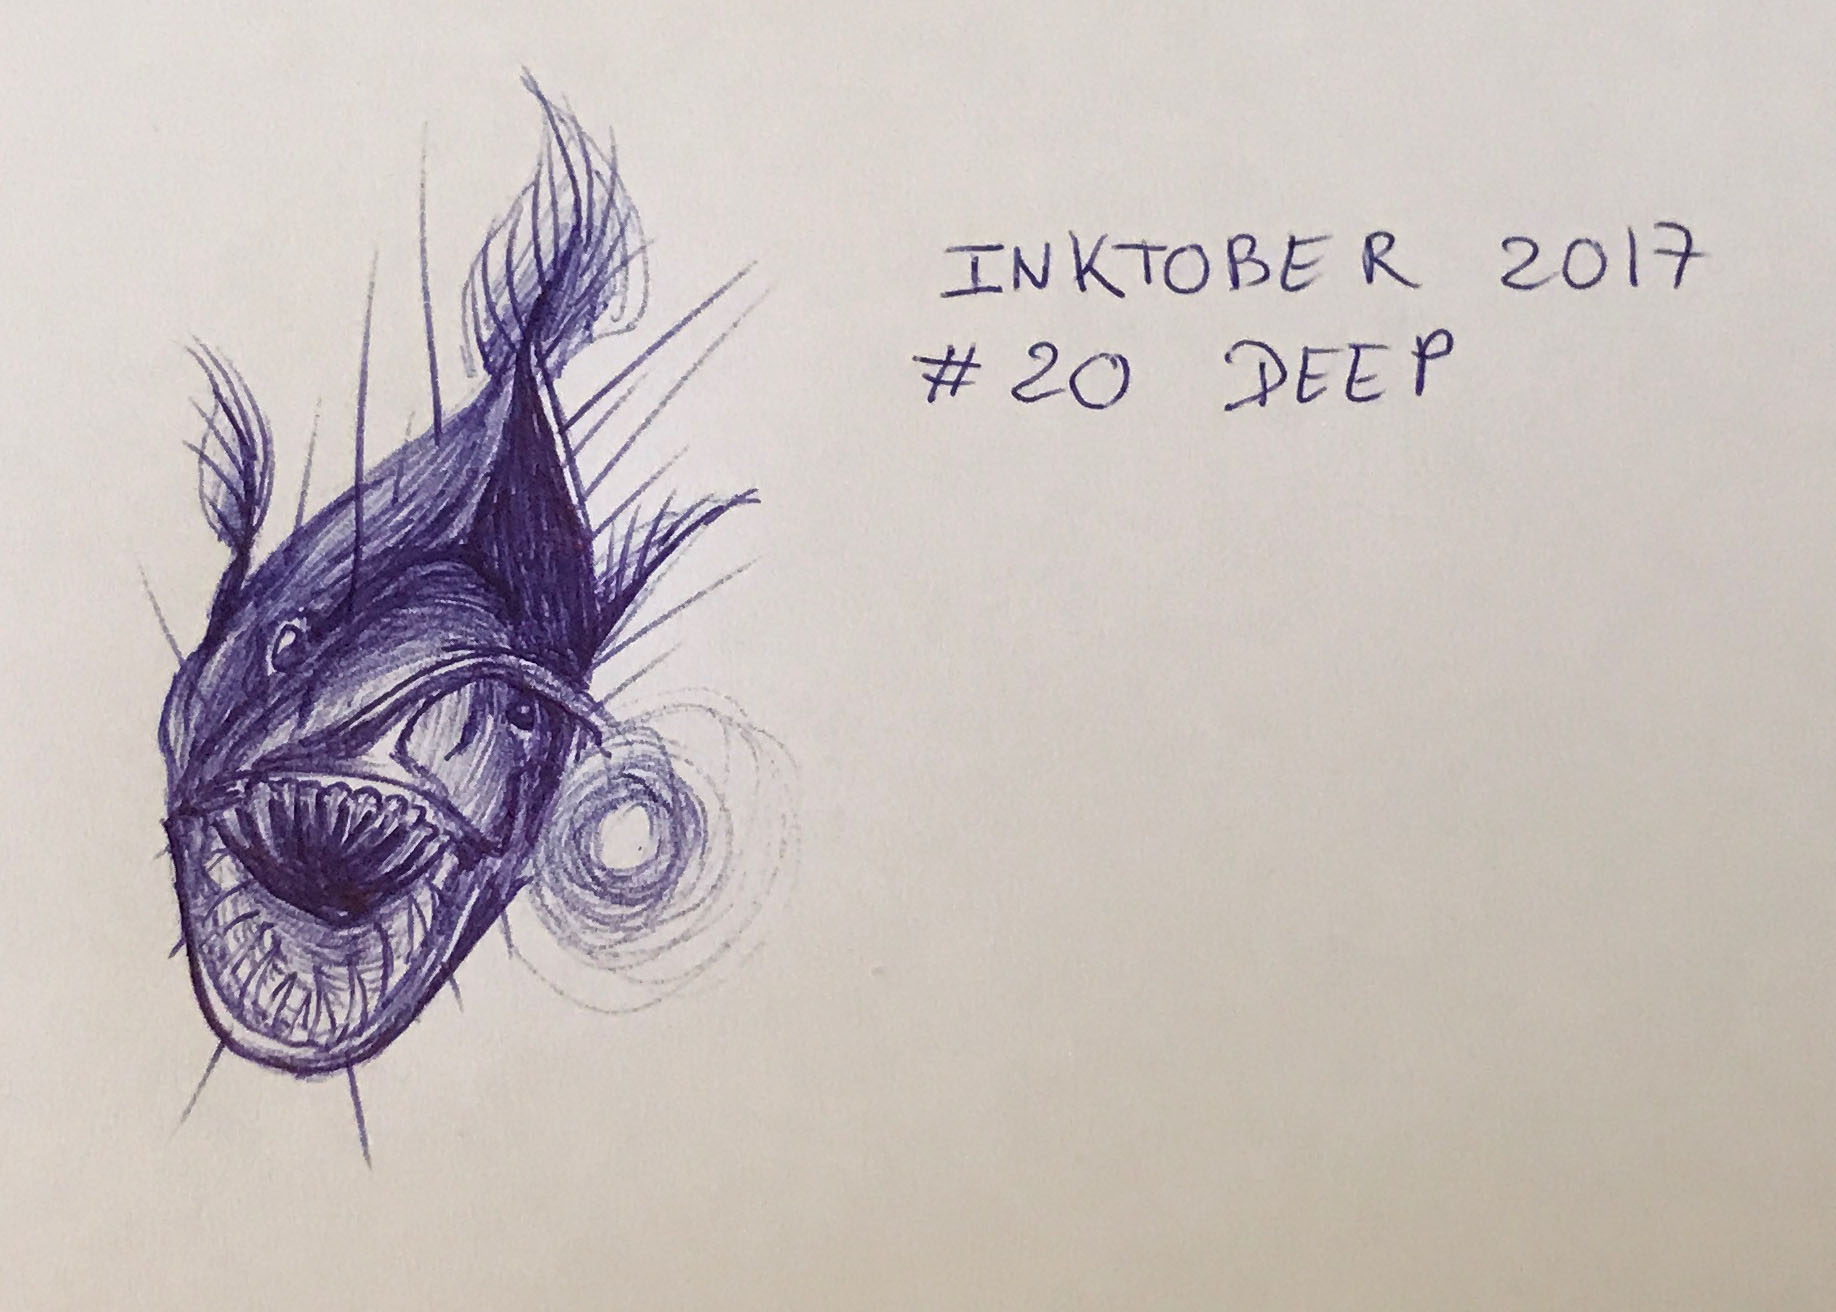 INKTOBER 2017
#20 DEEP